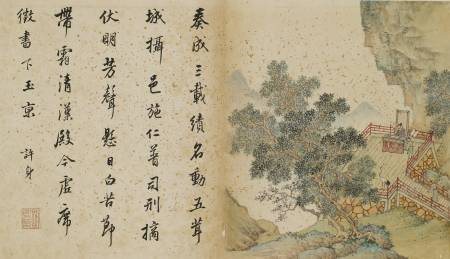 奏成三載績名動五茸
城攝邑施仁普司刑摘
伏明芳聲懸日白苦節
帶霜清漢殿今虛席
徵書下玉京
許身